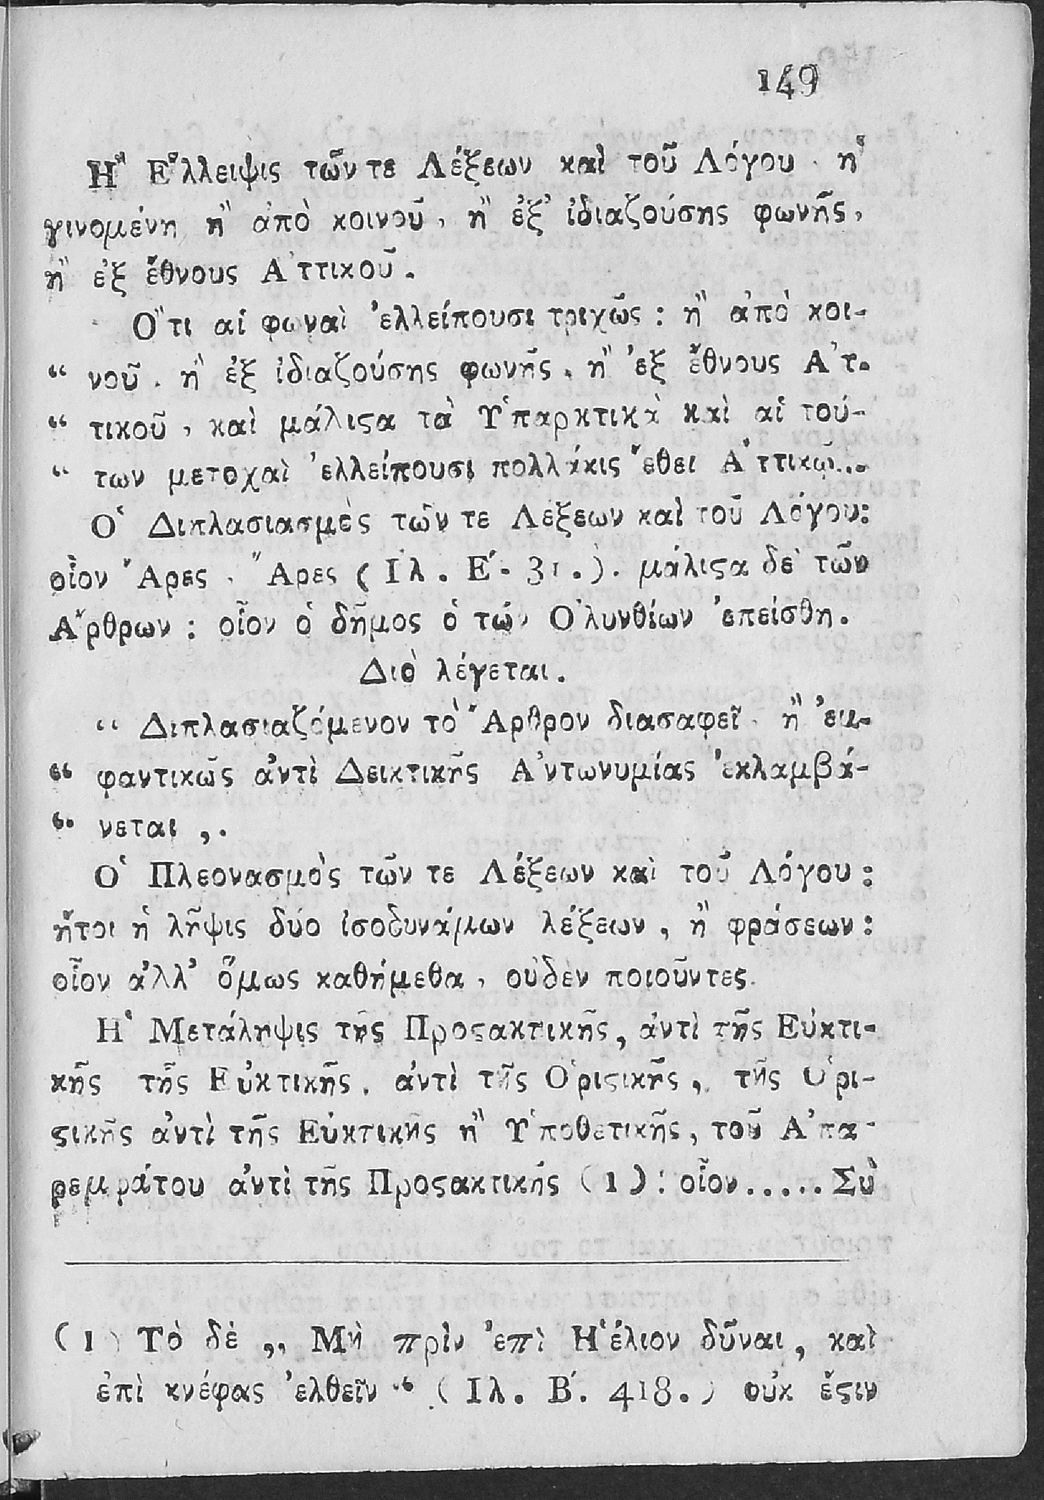 149
Ἡ Ἔλλειψις τῶν τε Λέξεων καὶ τοῦ Λόγου, ἡ
γινομένη ἢ ἀπὸ κοινοῦ, ἢ ἐξ ἰδιαζούσης φωνῆς,
ἢ ἐξ ἔθνους Ἀττικοῦ.
Ὅτι αἱ φωναὶ ἐλλείπουσι τριχῶς: ἢ ἀπὸ κοι-
“ νοῦ, ἢ ἐξ ἰδιαζούσης φωνῆς, ἢ ἐξ ἔθνους Ἀτ-
“ τικοῦ, καὶ μάλιϛα τὰ Ὑπαρκτικὰ καὶ αἱ τού-
“ των μετοχαὶ ἐλλείπουσι πολλάκις ἔθει Ἀττικῷ...
Ὁ Διπλασιασμὸς τῶν τε Λέξεων καὶ τοῦ Λόγου:
οἷον Ἄρες, Ἄρες (Ιλ. Ε΄. 31.). μάλιϛα δὲ τῶν
Ἄρθρων: οἷον ὁ δῆμος ὁ τῶν Ὀλυνθίων ἐπείσθη.
Διὸ λέγεται.
“ Διπλασιαζόμενον τὸ Ἄρθρον διασαφεῖ, ἢ ἐμ-
“ φαντικῶς ἀντὶ Δεικτικῆς Ἀντωνυμίας ἐκλαμβά-
“ νεται ,.
Ὁ Πλεονασμὸς τῶν τε Λέξεων καὶ τοῦ Λόγου:
ἤτοι ἡ λῆψις δύο ἰσοδυνάμων λέξεων, ἢ φράσεων:
οἷον ἀλλ’ ὅμως καθήμεθα, οὐδὲν ποιοῦντες.
Ἡ Μετάληψις τῆς Προϛακτικῆς, ἀντὶ τῆς Εὐκτι-
κῆς τῆς Εὐκτικῆς, ἀντὶ τῆς Ὁριϛικῆς, τῆς Ὁρι-
ϛικῆς ἀντὶ τῆς Εὐκτικῆς ἢ Ὑποθετικῆς, τοῦ Ἀπα-
ρεμφάτου ἀντὶ τῆς Προϛακτικῆς (1): οἷον..... Σὺ
(1) Τὸ δὲ ,, Μὴ πρὶν ἐπὶ Ἡέλιον δῦναι, καὶ
ἐπὶ κνέφας ἐλθεῖν “ (Ιλ. Β΄. 418.) οὐκ ἔϛιν